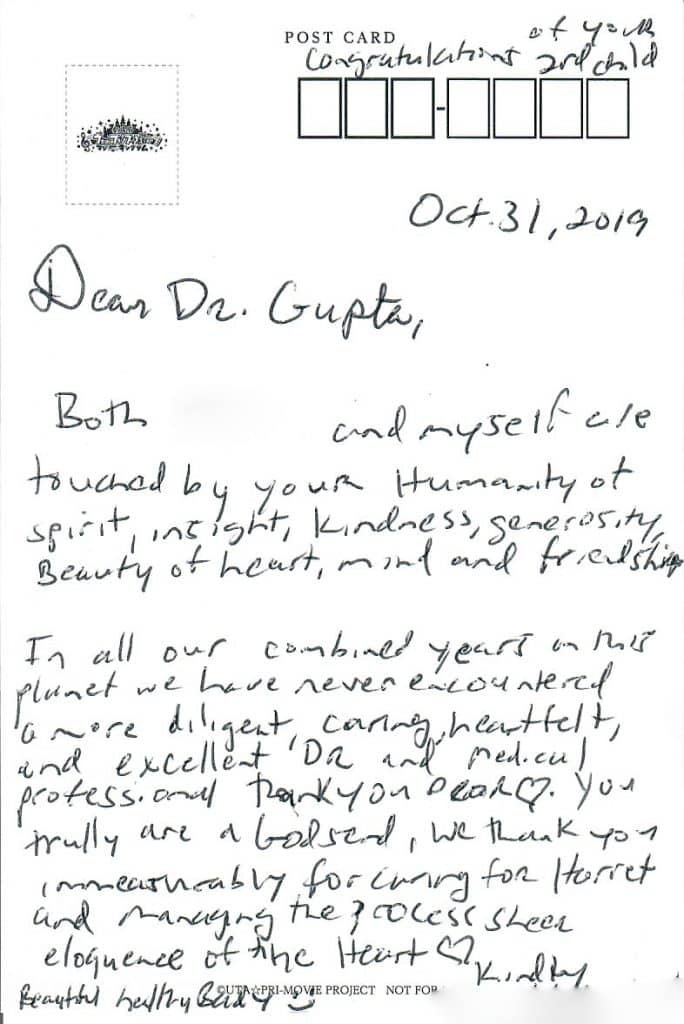 POST CARD
Congratulations of your
2nd child
Oct. 31, 2019
Dear Dr. Gupta,
Both and myself are
touched by your Humanity of
spirit, insight, kindness, generosity,
Beauty of heart, mind and friendship
In all our combined years on this
planet we have never encountered
a more diligent, caring, heartfelt,
and excellent DR and medical
professional Thank you Dear♡. You
trully are a Godsend, we thank you
immeasureably for caring for Harret
and managing the process sheer
eloquence of the Heart ♡
Kindly
Beautiful healthy Baby
©UTA☆PRI-MOVIE PROJECT NOT FOR